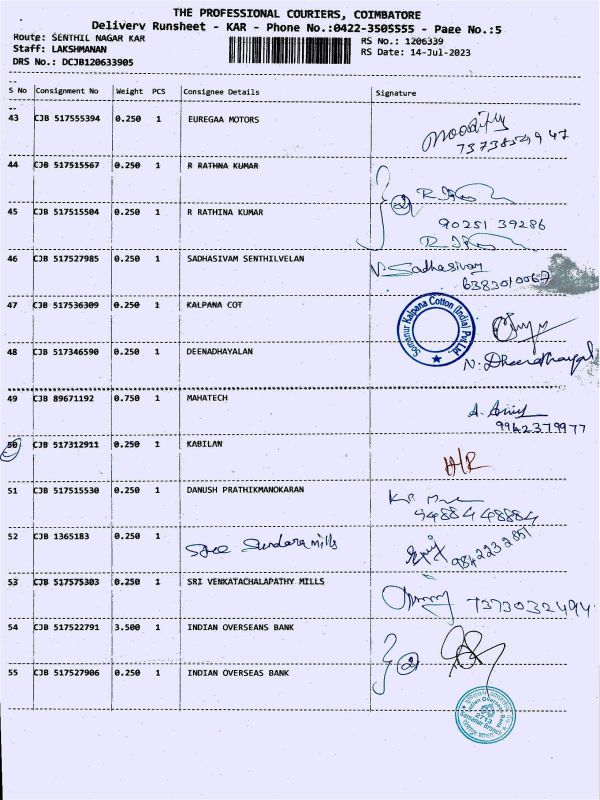 THE PROFESSIONAL COURIERS, COIMBATORE
Delivery Runsheet - KAR - Phone No.:0422-3505555 - Page No.:5
Route: SENTHIL NAGAR KAR
RS No.: 1206339
Staff: LAKSHMANAN
RS Date: 14-Jul-2023
DRS No.: DCJB120633905
S No Consignment No Weight PCS Consignee Details Signature
43 CJB 517555394 0.250 1 EUREGAA MOTORS
44 CJB 517515567 0.250 1 R RATHNA KUMAR
2
45 CJB 517515504 0.250 1 R RATHINA KUMAR
90251 39286
46 CJB 517527985 0.250 1 SADHASIVAM SENTHILVELAN
N. Sadhasivam
6383010067
47 CJB 517536309 0.250 1 KALPANA COT
Somanur Kalpana Cotton (India) Pvt. Ltd.
48 CJB 517346590 0.250 1 DEENADHAYALAN
N. Dheenadhayal
49 CJB 89671192 0.750 1 MAHATECH
9942379977
50 CJB 517312911 0.250 1 KABILAN
H/R
51 CJB 517515530 0.250 1 DANUSH PRATHIKMANOKARAN
94884 48884
52 CJB 1365183 0.250 1 Sree Sundara mills
9842232851
53 CJB 517575303 0.250 1 SRI VENKATACHALAPATHY MILLS
7373032494
54 CJB 517522791 3.500 1 INDIAN OVERSEANS BANK
2
55 CJB 517527906 0.250 1 INDIAN OVERSEAS BANK
Indian Overseas Bank
2713
Somanur Branch